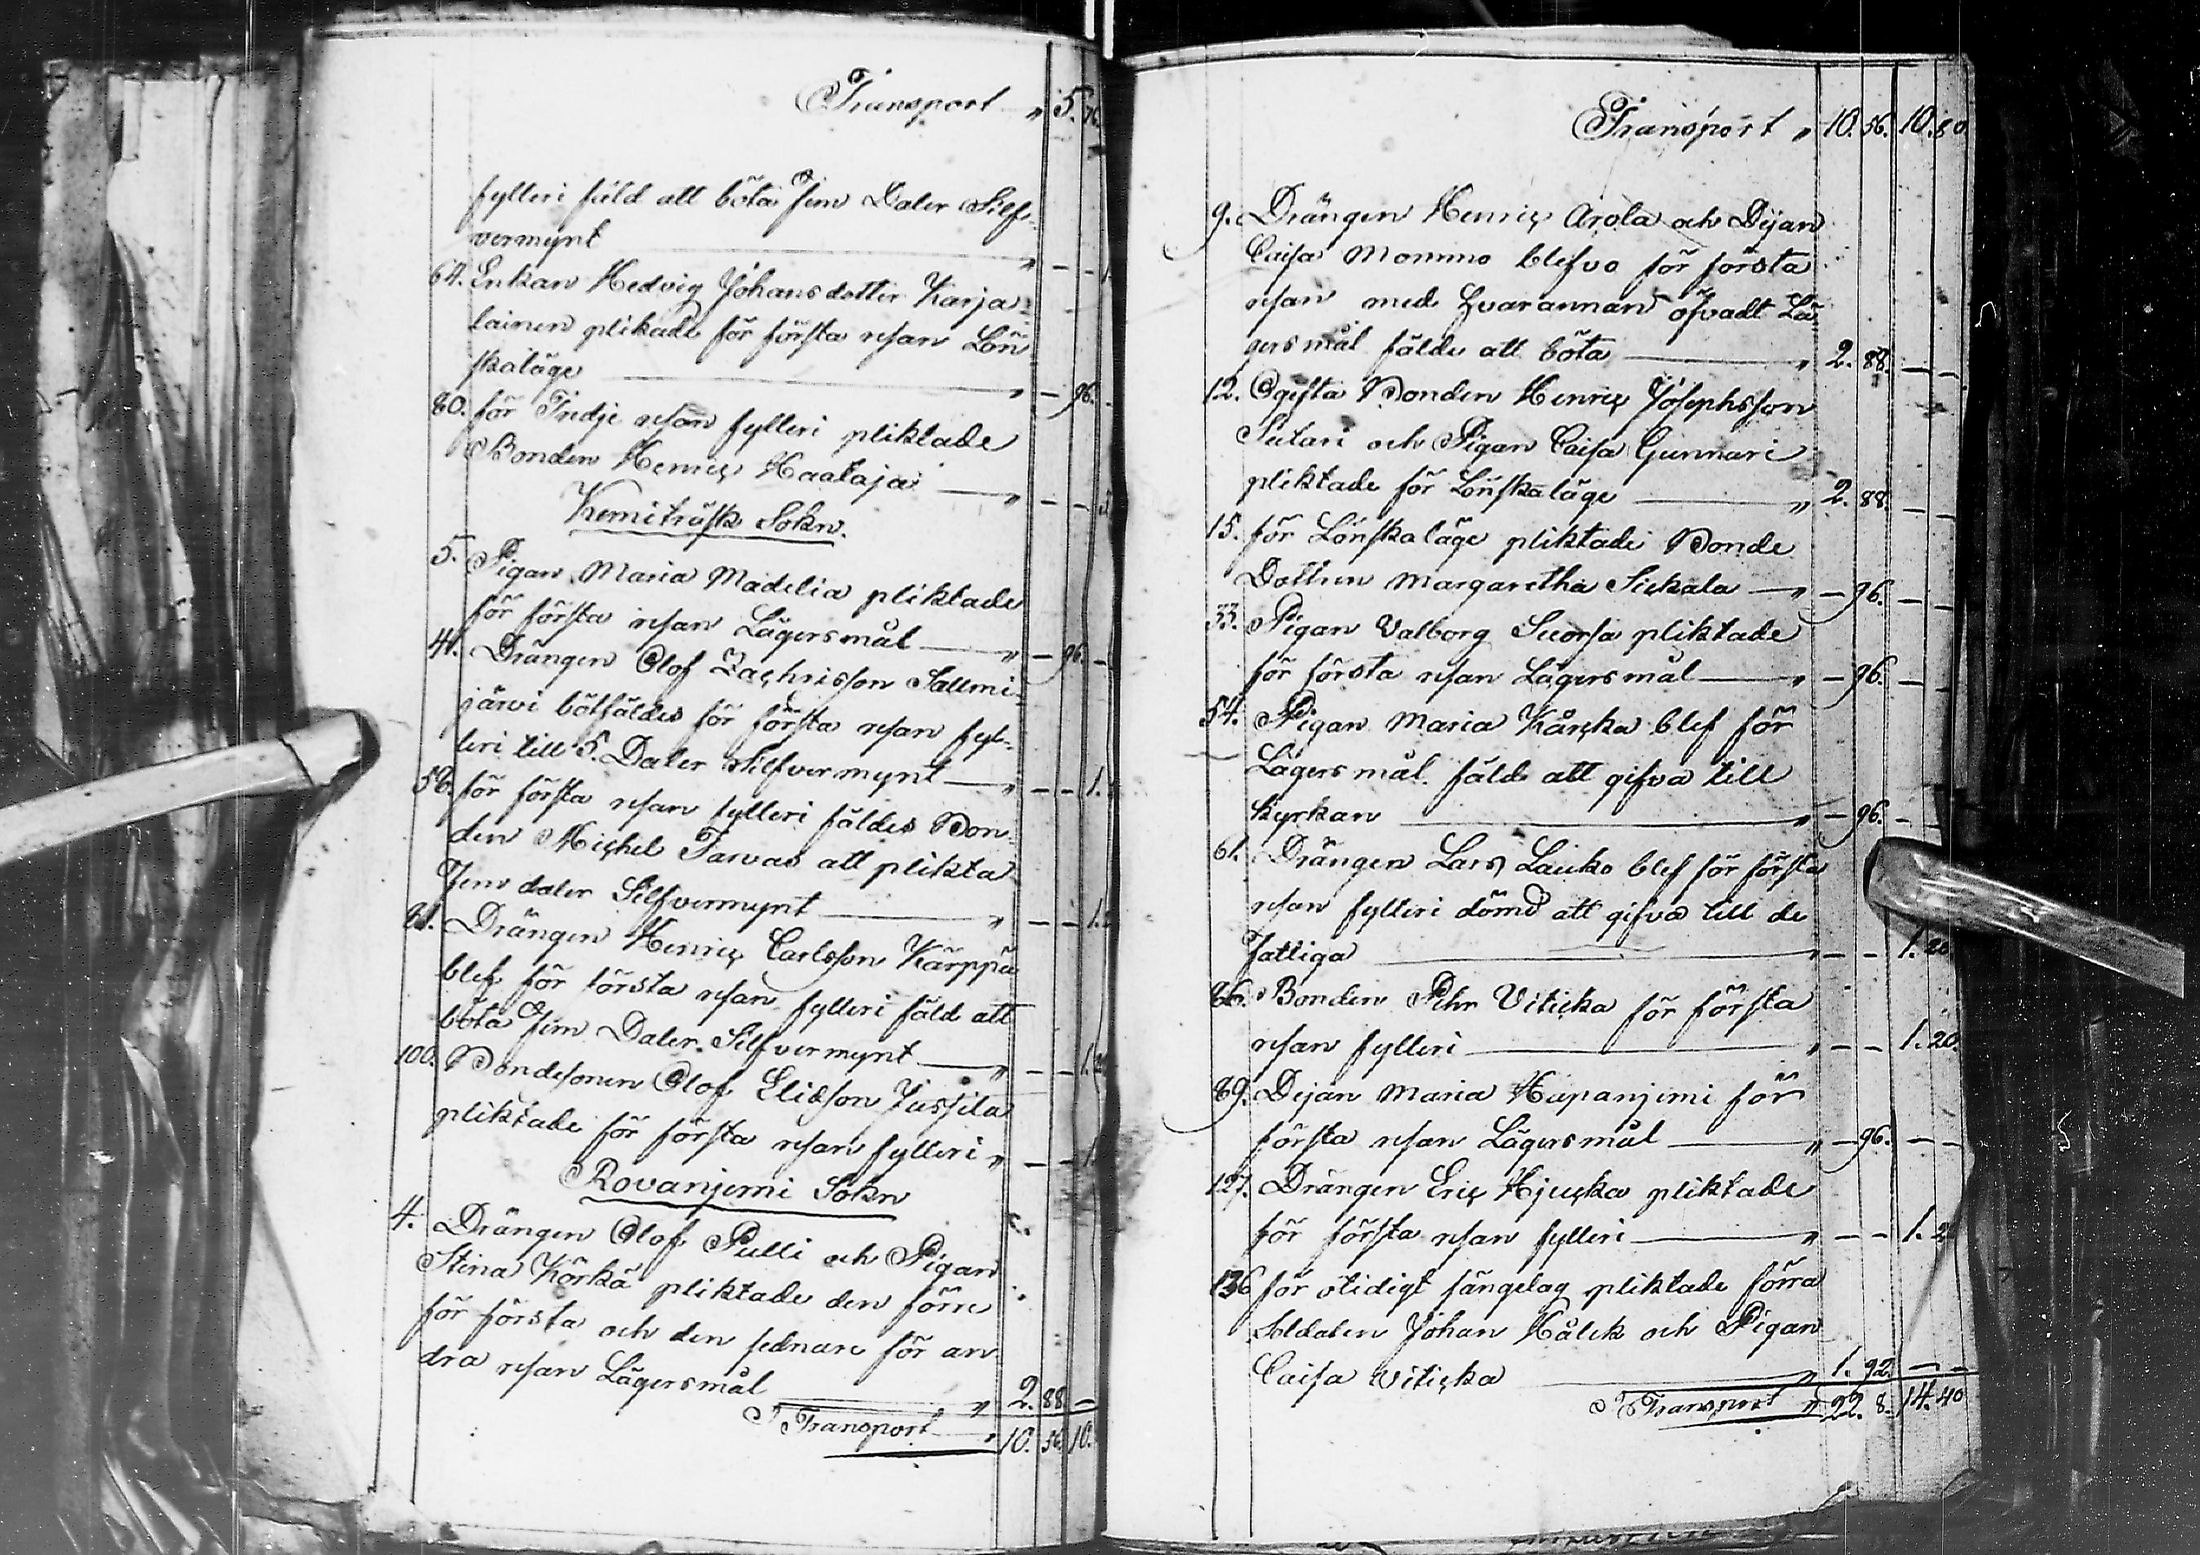 Transport " 5. 76.
fylleri fäld att böta Fem Daler Silf-
vermynt " – –
64. Enkan Hedvig Johansdotter Karja-
lainen plikade för första resan Lön
skaläge " – 96.
80. för Tredje resan fylleri pliktade
Bonden Henric Haataja " – –
Kemiträsk Sokn.
5. Pigan Maria Madelia pliktade
för första resan Lägersmål " – 96. –
41. Drängen Olof Zachrisson Sallmi-
järvi bötfäldes för första resan fyl-
leri till 5. Daler Silfvermynt " – – 1.
58. för första resan fylleri fäldes Bon-
den Michel Tarvas att plikta
Fem daler Silfvermynt " – – 1.
81. Drängen Henric Carlsson Kärppä
blef för första resan fylleri fäld att
böta Fem Daler Silfvermynt " – – 1. 20
100. Bondesonen Olof Eliasson Jussila
pliktade för första resan fylleri " – – 1.
Rovanjemi Sokn
4. Drängen Olof Pulli och Pigan
Stina Körkä pliktade den förre
för första och den sednare för an-
dra resan Lägersmål " 2. 88. –
Transport " 10. 56. 10.
Transport " 10. 56. 10. 80
9. Drängen Henric Arola och Dejan
Caisa Mommo blefvo för första
resan med hvarannan öfvadt Lä-
gersmål fälde att böta " 2. 88. – –
12. Ogifta Bonden Henric Josephsson
Sutari och Pigan Caisa Gunnari
pliktade för Lönskaläge " 2. 88. – –
15. för Lönskaläge pliktade Bonde
Dottren Margaretha Sickala " – 96. – –
33. Pigan Valborg Suorsa pliktade
för första resan Lägersmål " – 96. – –
54. Pigan Maria Kårcka blef för
Lägersmål fäld att gifva till
Kyrkan " – 96. – –
61. Drängen Lars Lauko blef för första
resan fylleri dömd att gifva till de
Fattiga " – – 1. 20
86. Bonden Pehr Viticka för första
resan fylleri " – – 1. 20.
89. Dejan Maria Haapanjemi för
första resan Lägersmål " – 96. – –
127. Drängen Eric Hjucka pliktade
för första resan fylleri " – – 1. 2
136 för otidigt sängelag pliktade förra
Soldaten Johan Kålck och Pigan
Caisa Viticka " 1. 92. – –
Transport " 22. 8. 14. 40